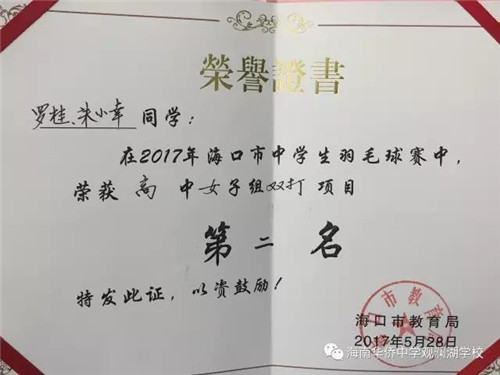 榮譽證書
罗桂、朱小幸 同学：
在2017年海口市中学生羽毛球赛中，
荣获 高 中女子组双打 项目
第二名
特发此证，以资鼓励！
口市教育
海口市教育局
2017年5月28日
海南华侨中学观澜湖学校